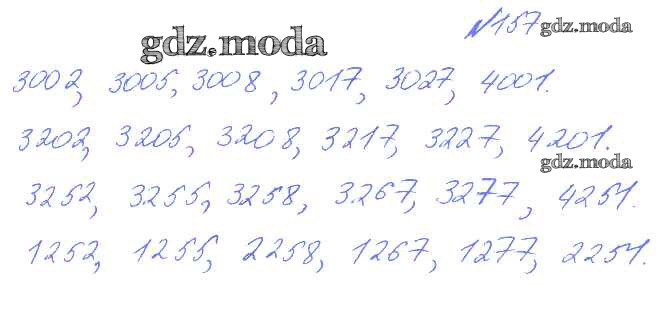 №157 gdz.moda
gdz.moda
3002, 3005, 3008, 3017, 3027, 4001.
3202, 3205, 3208, 3217, 3227, 4201.
gdz.moda
3252, 3255, 3258, 3267, 3277, 4251.
1252, 1255, 2258, 1267, 1277, 2251.